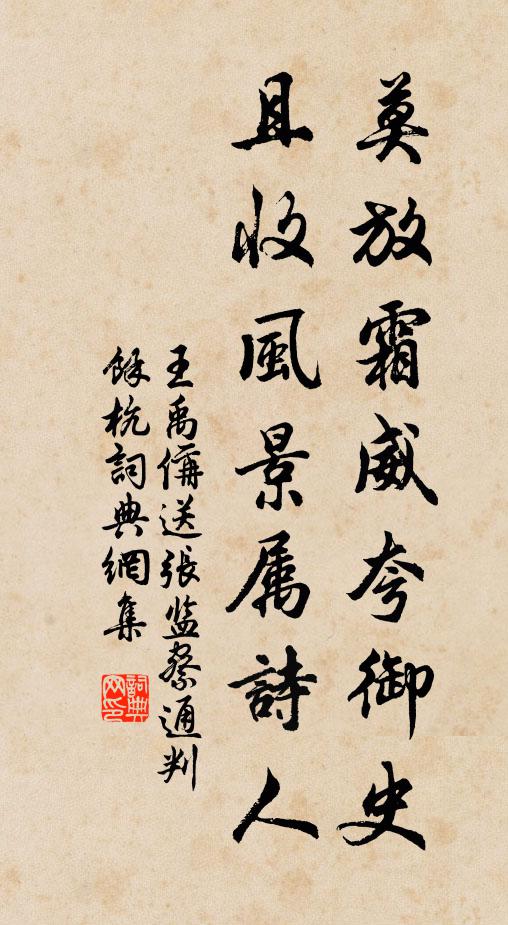 莫放霜威夸御史
且收風景属詩人
王禹偁送張监察通判
餘杭詞典網集
詞典網印